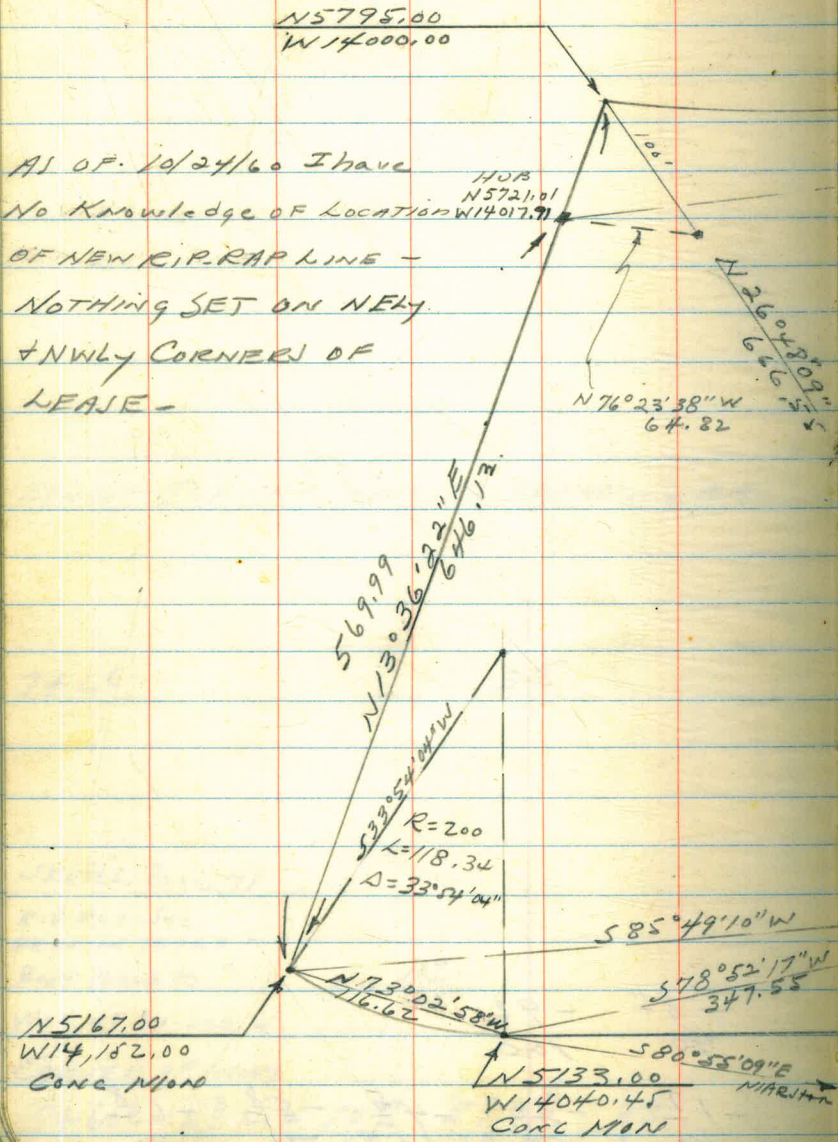 N5795.00
W14000.00
100'
AS OF. 10/24/60 I have
No Knowledge OF LOCATION
OF NEW RIP-RAP LINE -
NOTHING SET ON NELY
& NWLY CORNERS OF
LEASE -
HUB
N5721.01
W14017.91
N26°48'09"
666.55
N76°23'38"W
64.82
569.99
N13°36'22"E
646.13
S33°54'04"W
R=200
L=118.34
Δ=33°54'04"
S85°49'10"W
S78°52'17"W
347.55
N73°02'58"W
116.62
S80°55'09"E
N5167.00
W14,152.00
CONC MON
N5133.00
W14040.45
CONC MON